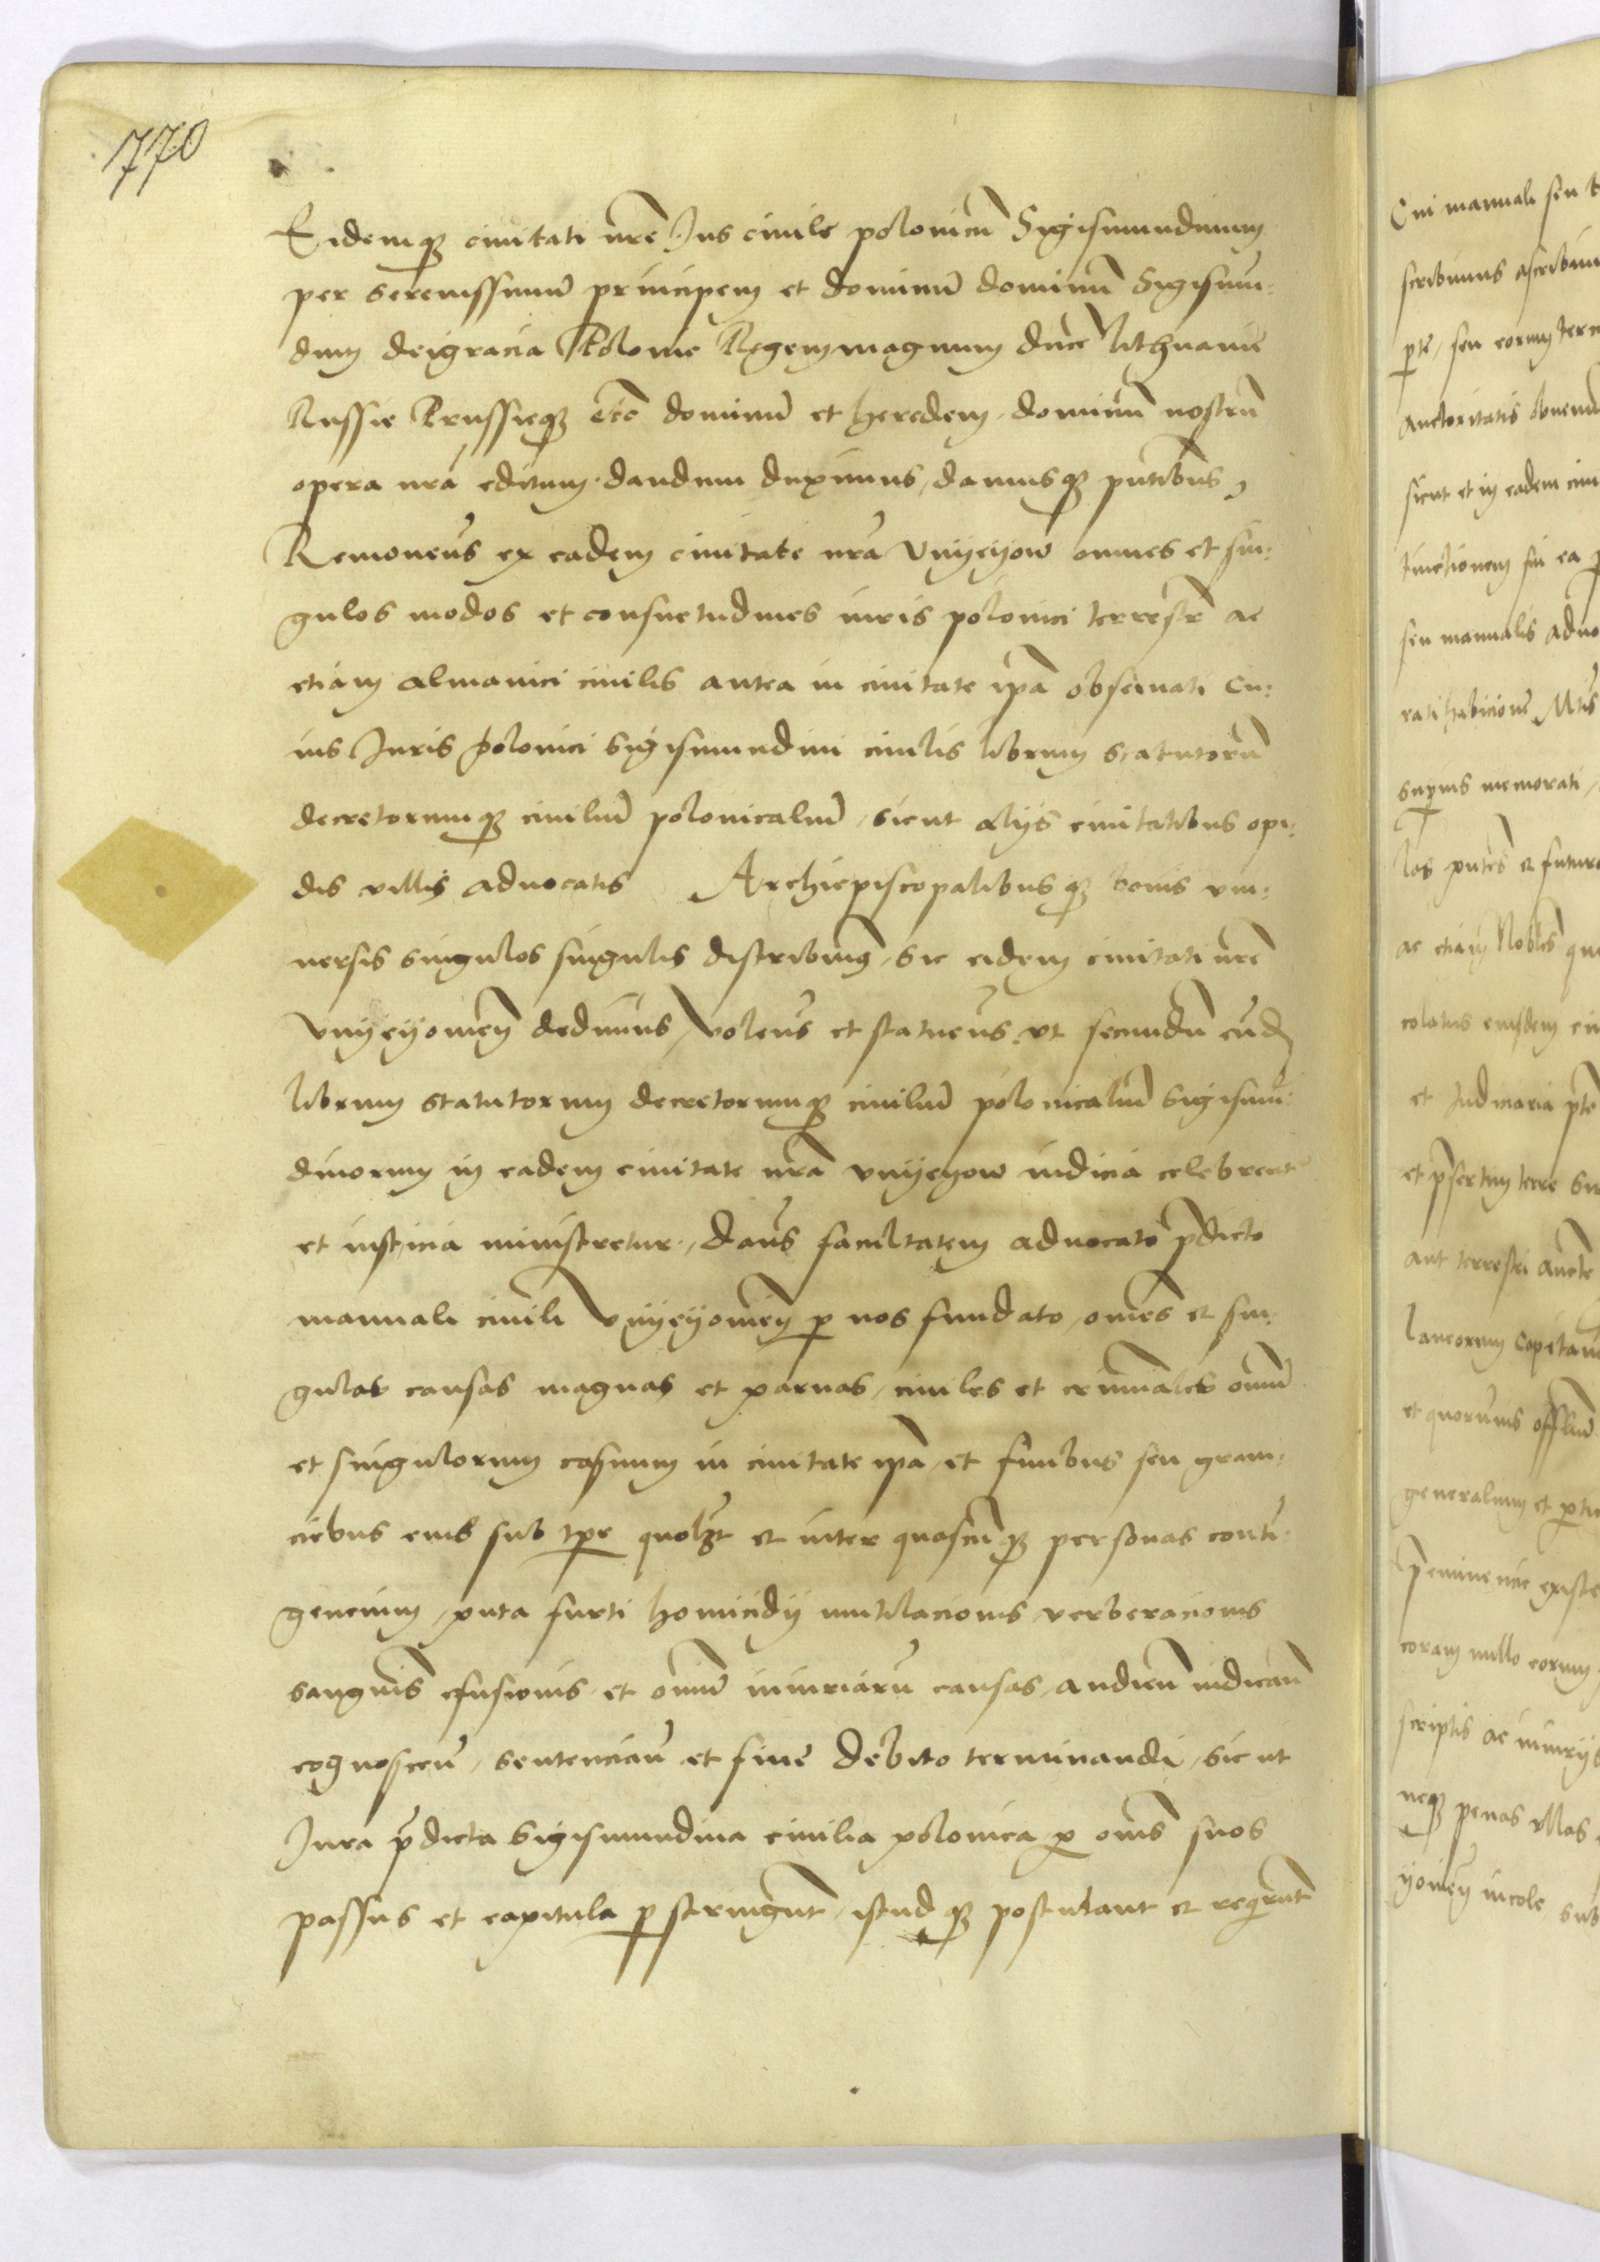 770
Eidemq3 civitati nr̄e Jus civile polonicū Sigismundinum
per serenissimū principem et dominū dominū Sigismū:
dum dei gracia Polonie Regem magnum ducē lithuanie
Russie Prussieq3 etc̄ dominū et heredem, dominū nostrū
opera nr̄a editum dandum duximus, damusq3 pn̄tibus,
Removeñs ex eadem civitate nr̄a Vnyeyow omnes et sin:
gulos modos et consuetudines iuris polonici terrestr̄ ac
etiam almanici civilis antea in civitate ip̄a observati Cu:
ius Juris polonici Sigismundini civilis librum statutorū
decretorumq3 civiliū polonicaliū, sicut alijs civitatibus opi:
dis villis advocatis Archiepiscopalibusq3 bonis vni:
versis singulos singulis distribuimꝰ, sic eidem civitati nr̄e
Vnyeyovieñ dedimus, Voleñs et statueñs, vt secundū eūd
librum statutorum decretorumq3 civiliū polonicaliū Sigismū:
dinorum in eadem civitate nr̄a vnyeyow iudicia celebrent̄
et iusticia ministretur, dañs facultatem advocato p̄dicto
manuali civili Vnyeyovieñ ꝑ nos fundato, om̄es et sin:
gulas causas magnas et parvas, civiles et criminales om̄iū
et singulorum casuum in civitate ip̄a, et finibus seu grani:
ciebus eius sub tp̄re quolꝫt et inter quascūq3 personas conti:
gencium, puta furti homicidij mutilacionis, verberacionis
sanguinis effusionis et om̄iū iniuriarū causas, audieñ iudicañ
cognosceñ, sentenciañ et fine debito terminandi, sicut
Jura p̄dicta Sigismundina civilia polonica ꝑ om̄s suos
passus et capitula ꝑstringunt, istudq3 postulant et reqrūnt
Cui manuali seu
scribimus ascribim
ꝑte, seu eorum terr
auctoritatis
sicut et in eadem civi
seu manualis advo
ratihabicione Mtis
superius memorati,
los pn̄tes et futuro
ac etiam Nobiles
et Judiciaria
et p̄sertim terre
aut terrestri
et quorumvis officiū
generalium et
coram nullo eorum
scriptis ac iniurijs
neq3 penas vllas
incole, sub